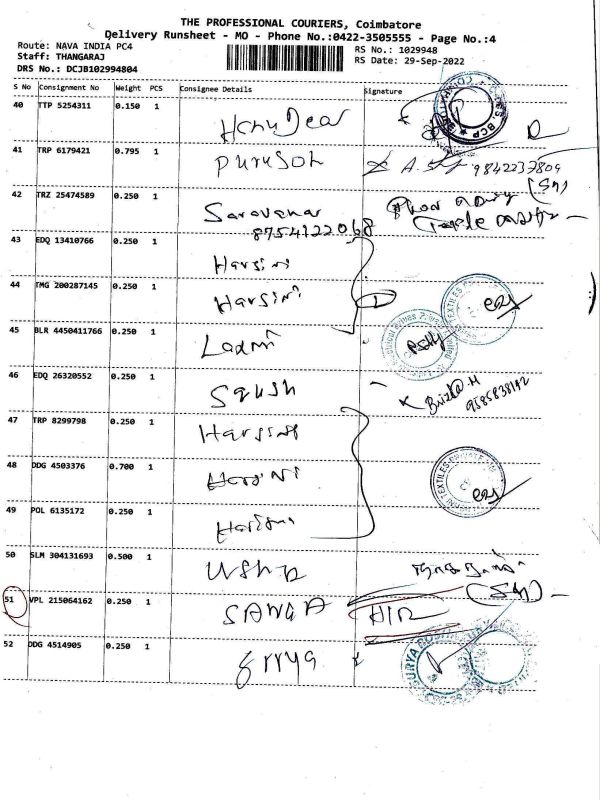 THE PROFESSIONAL COURIERS, Coimbatore
Delivery Runsheet - MO - Phone No.:0422-3505555 - Page No.:4
Route: NAVA INDIA PC4
RS No.: 1029948
Staff: THANGARAJ
RS Date: 29-Sep-2022
DRS No.: DCJB102994804
S No Consignment No Weight PCS Consignee Details Signature
40 TTP 5254311 0.150 1
41 TRP 6179421 0.795 1 Purusoh
9842237809
42 TRZ 25474589 0.250 1 Saravanar
8754122068
43 EDQ 13410766 0.250 1 Harsini
44 TMG 200287145 0.250 1 Harsini
45 BLR 4450411766 0.250 1 Laxmi
46 EDQ 26320552 0.250 1
9585838192
47 TRP 8299798 0.250 1 Harsini
48 DDG 4503376 0.700 1 Harsini
49 POL 6135172 0.250 1
50 SLM 304131693 0.500 1 Usha
51 VPL 215064162 0.250 1 SANGA
52 DDG 4514905 0.250 1